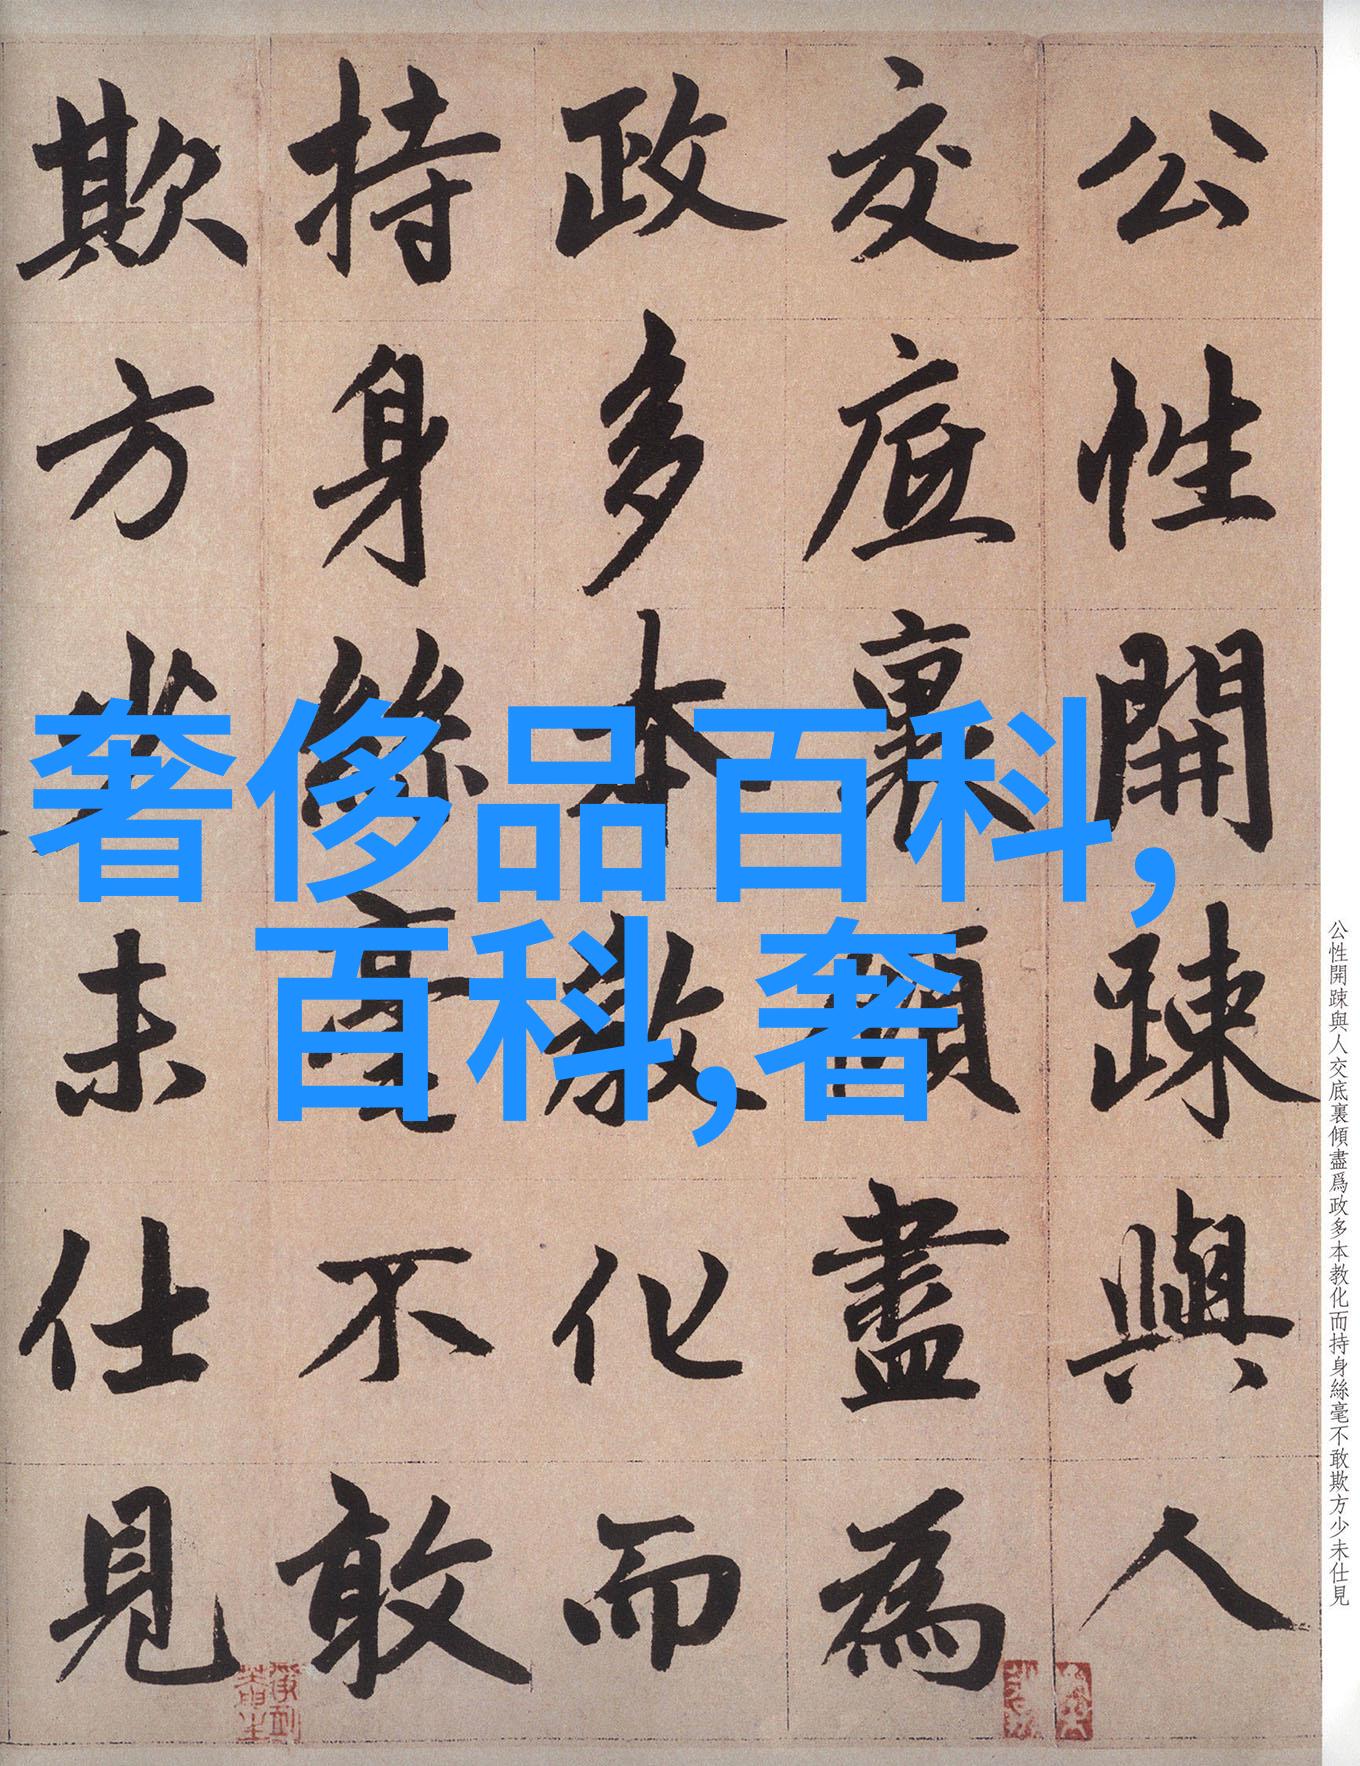 公性開踈與人
交底裏傾盡為
政多本教化而
持身絲毫不敢
欺方少未仕見
奢侈品百科,
百科,奢
公性開踈與人交底裏傾盡爲政多本教化而持身絲毫不敢欺方少未仕見